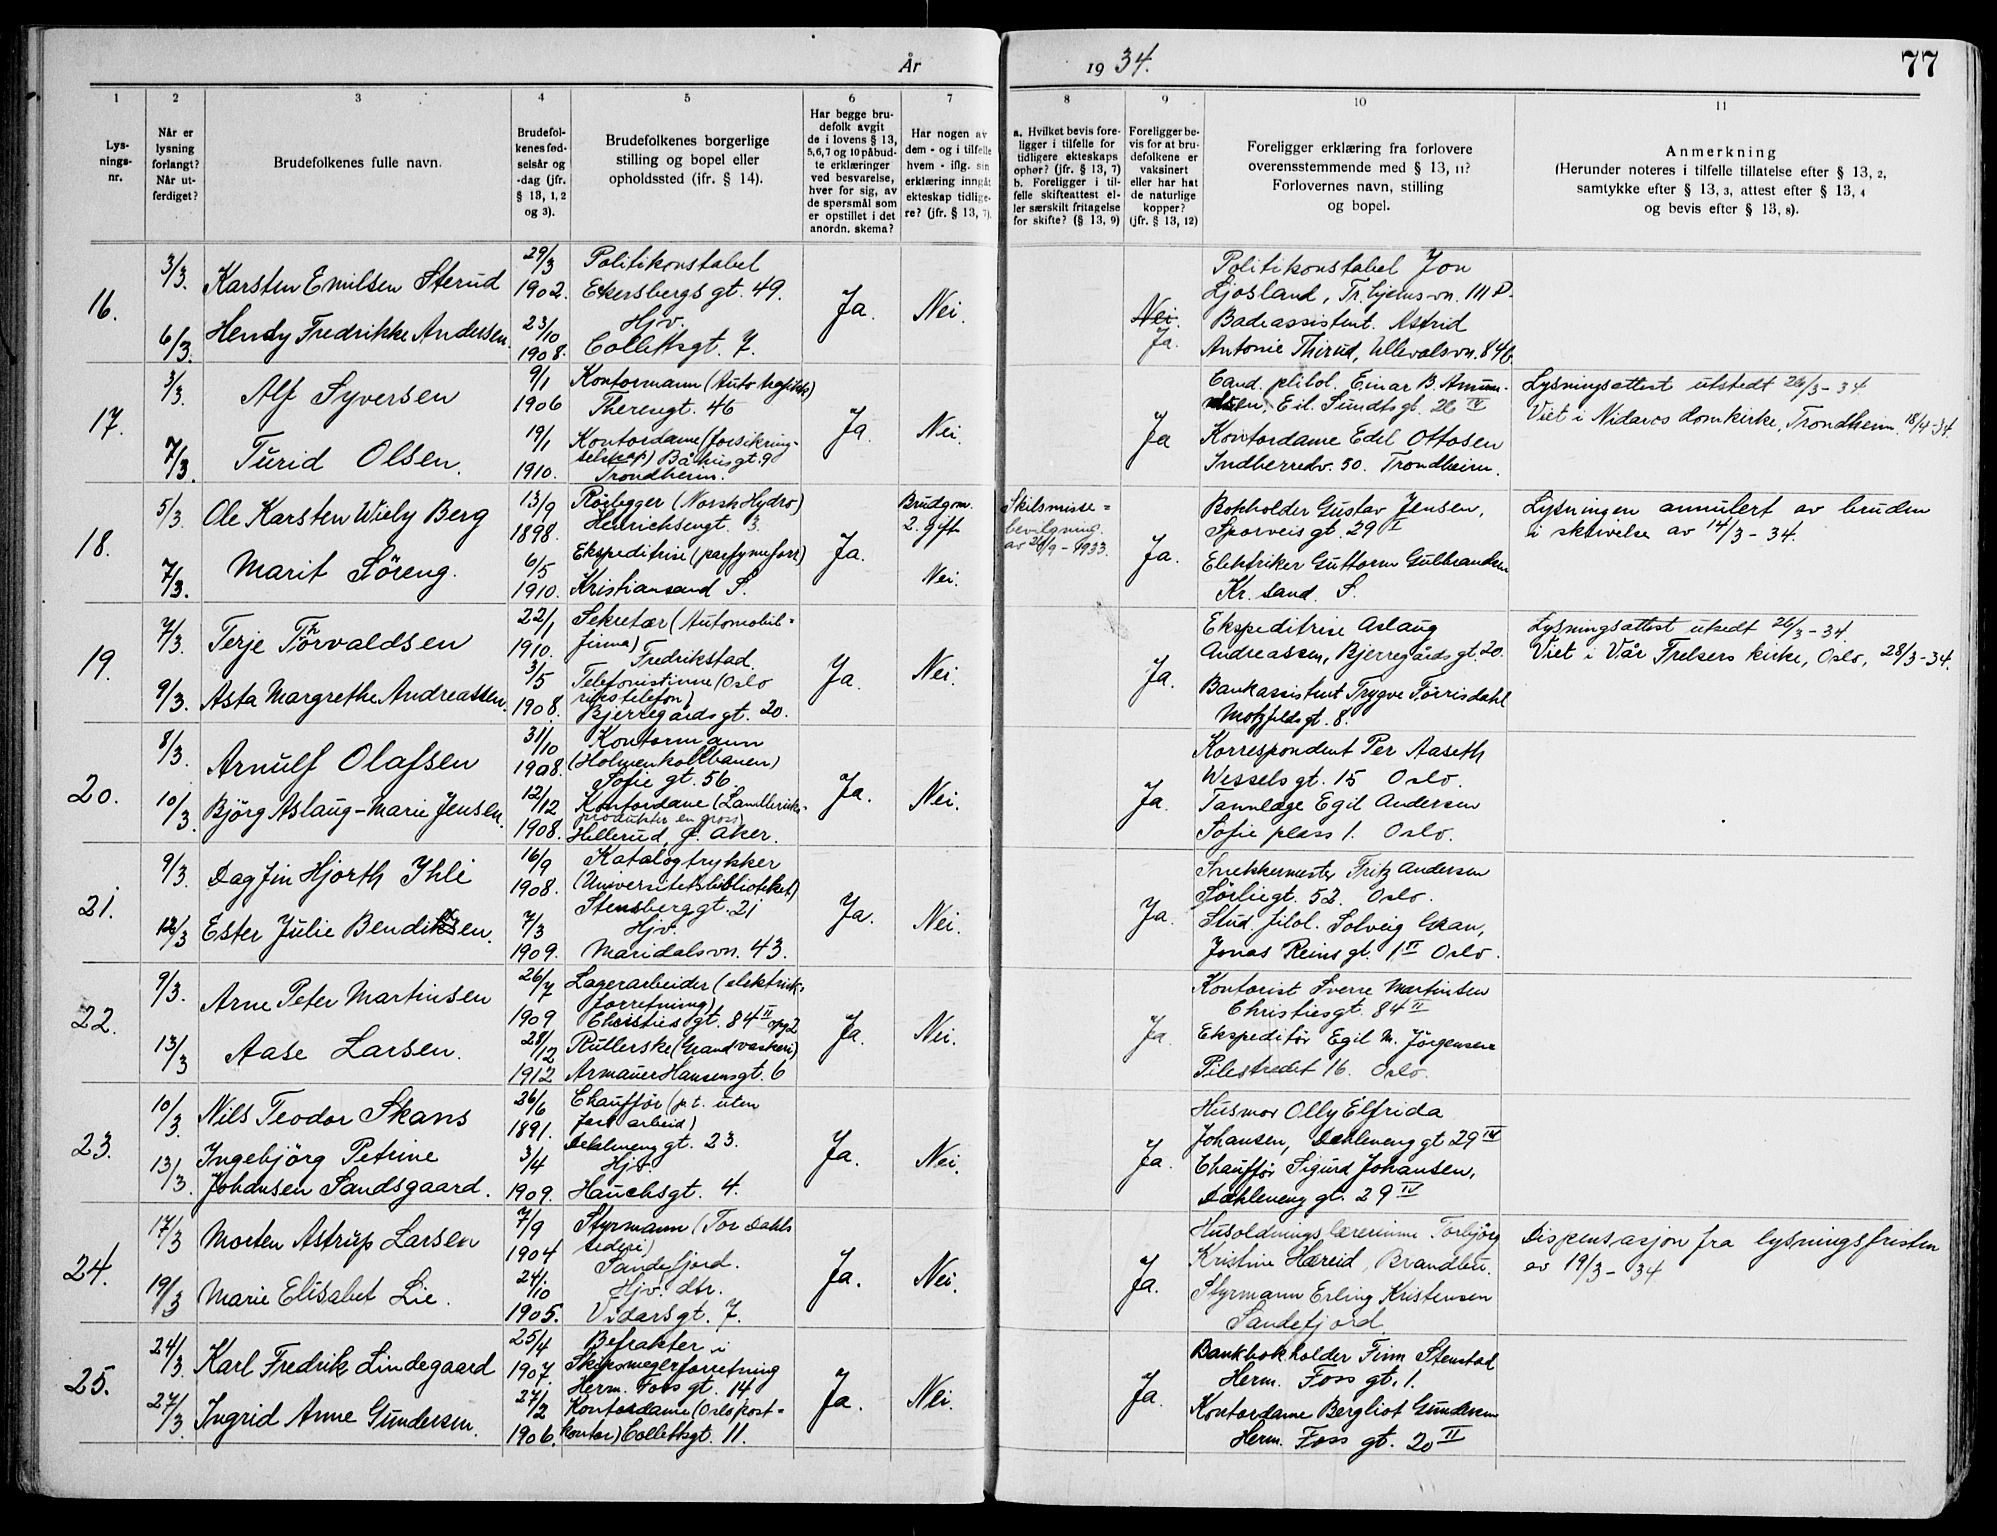 År
1934.
77
1
2
3
4
5
6
7
8
9
10
11
Lys-
nings-
nr.
Når er
lysning
forlangt?
Når ut-
ferdiget?
Brudefolkenes fulle navn.
Brudefol-
kenes fød-
selsår og
-dag (jfr.
§ 13, 1, 2
og 3).
Brudefolkenes borgerlige
stilling og bopel eller
opholdssted (ifr. § 14).
Har begge bru-
defolk avgit
de i lovens § 13,
5,6,7 og 10 påbud-
te erklæringer
ved besvarelse,
hver for sig, av
de spørsmål som
er opstillet i det
anordn. skema?
Har nogen av
dem - og i tilfelle
hvem - iflg. sin
erklæring inngåt
ekteskap tidlige-
re? (jfr. § 13, 7).
a. Hvilket bevis fore-
ligger i tilfelle for
tidligere ekteskaps
ophør? (jfr. § 13, 7)
b. Foreligger i til-
felle skifteattest el-
ler særskilt fritagelse
for skifte? (§ 13, 9)
Foreligger be-
vis for at bru-
defolkene er
vaksinert
eller har hat
de naturlige
kopper?
(jfr. § 13, 12)
Foreligger erklæring fra forlovere
overensstemmende med § 13, 11?
Forlovernes navn, stilling
og bopel.
Anmerkning
(Herunder noteres i tilfelle tillatelse efter § 13, 2,
samtykke efter § 13, 3, attest efter § 13, 4
og bevis efter § 13, 8).
16.
3/3.
6/3.
Karsten Emilsen Sterud
Hendy Fredrikke Andersen.
29/3
1902.
23/10
1908.
Politikonstabel
Ekersbergs gt. 49.
Hjv.
Collettsgt. 7.
Ja.
Nei.
Nei.
Ja.
Politikonstabel Jon
Ljosland, Tr.hjems-vn. 111
Badeassistent. Astrid
Antonie Thirud, Ullevålsvn. 84b.
17.
3/3.
7/3.
Alf Syversen
Turid Olsen.
9/1
1906
19/1
1910.
Kontormann (Auto trafikk)
Theresgt. 46
Kontordame (forsikring-
selskap) Båhusgt. 9
Trondheim.
Ja.
Nei.
Ja
Cand. philol. Einar B. Amun-
dsen, Eil. Sundtsgt. 26 IV
Kontordame Edel Ottosen
Indherredv. 50. Trondheim.
Lysningsattest utstedt 26/3-34
Viet i Nidaros domkirke, Trondheim. 18/4-34.
18.
5/3.
7/3.
Ole Karsten Wiely Berg
Marit Söreng.
13/9
1898.
6/5
1910.
Rørlegger (Norsk Hydro)
Henrichsengt. 3
Ekspeditrise (parfymeforr.)
Kristiansand S.
Ja.
Brudgom.
2. gift
Nei.
Skilsmisse-
bevilgning.
av 26/9-1933.
Ja.
Bokholder Gustav Jensen,
Sporveisgt. 29 I
Elektriker Guttorm Gulbrandsen
Kr. sand. S.
Lysningen annulert av bruden
i skrivelse av 14/3-34.
19.
7/3.
9/3.
Terje Thorvaldsen
Asta Margrethe Andreassen.
22/1
1910.
3/5
1908.
Sekretær (Automobil-
firma)
Fredrikstad.
Telefonistinne (Oslo
rikstelefon)
Bjerregårdsgt. 20.
Ja.
Nei.
Ja.
Ekspeditrise Aslaug
Andreassen, Bjerregårdsgt. 20.
Bankassistent Trygve Torrisdahl
Motzfeldsgt. 8.
Lysningsattest utsedt 26/3-34.
Viet i Vår Frelsers kirke, Oslo, 28/3-34.
20.
8/3.
10/3.
Arnulf Olafsen
Björg Aslaug-Marie Jensen.
31/10
1908.
12/12
1908.
Kontormann
(Holmenkollbanen)
Sofie gt. 56.
Kontordame (Landbruks-
produkter en gross)
Hellerud, Ö. Aker.
Ja.
Nei.
Ja.
Korrespondent Per Aaseth
Wesselsgt. 15 Oslo.
Tannlæge Egil Andersen
Sofie plass 1. Oslo.
21.
9/3.
12/3
Dagfin Hjorth Ihle
Ester Julie Bendiksen.
16/9
1908.
7/3
1909.
Katalogtrykker
(Universitetsbiblioteket)
Stensberggt. 21
Hjv.
Maridalsvn. 43.
Ja.
Nei.
Ja.
Snekkermester Fritz Andersen
Sörliegt. 52. Oslo.
Stud. filol. Solveig Gran,
Jonas Reinsgt. 1 II Oslo.
22.
9/3.
13/3
Arne Peter Martinsen
Aase Larsen.
26/7
1909
28/12
1912
Lagerarbeider (elektrisk-
forretning)
Christiesgt. 84 II opg 2
Rullerske (Grand vaskeri)
Armauer Hansensgt. 6
Ja.
Nei.
Ja.
Kontorist Sverre Martinsen
Christiesgt. 84 II
Ekspeditör Egil M. Jörgensen
Pilestredet 16. Oslo.
23.
10/3.
13/3.
Nils Teodor Skans
Ingebjörg Petrine
Johansen Sandsgaard.
26/6
1891.
3/4
1909.
Chaufför (p.t. uten
fast arbeid)
Dæhleneng gt. 23.
Hjv.
Hauchsgt. 4.
Ja.
Nei.
Ja.
Husmor Olly Elfrida
Johansen, Dæhleneng gt 29 IV
Chaufför Sigurd Johansen,
Dæhleneng gt. 29 IV
24.
17/3
19/3
Morten Astrup Larsen
Marie Elisabet Lie.
7/9
1904
24/10
1905.
Styrmann (Tor Dahls
rederi)
Sandefjord.
Hjv. dtr.
Vidarsgt. 7.
Ja.
Nei.
Ja.
Husoldningslærerinne Torbjörg
Kristine Hæreid, Brandbu.
Styrmann Erling Kristensen
Sandefjord
Dispensasjon fra lysningsfristen
av 19/3-34
25.
24/3
27/3
Karl Fredrik Lindegaard
Ingrid Anne Gundersen.
25/4
1907.
27/2
1906.
Befrakter i
Skipsmeglerforretning
Herm. Foss gt. 14
Kontordame (Oslo post-
kontor) Collettsgt. 11.
Ja.
Nei.
Ja.
Bankbokholder Finn Stenstad
Herm. Foss gt. 1.
Kontordame Bergliot Gundersen
Herm. Foss gt. 20 II